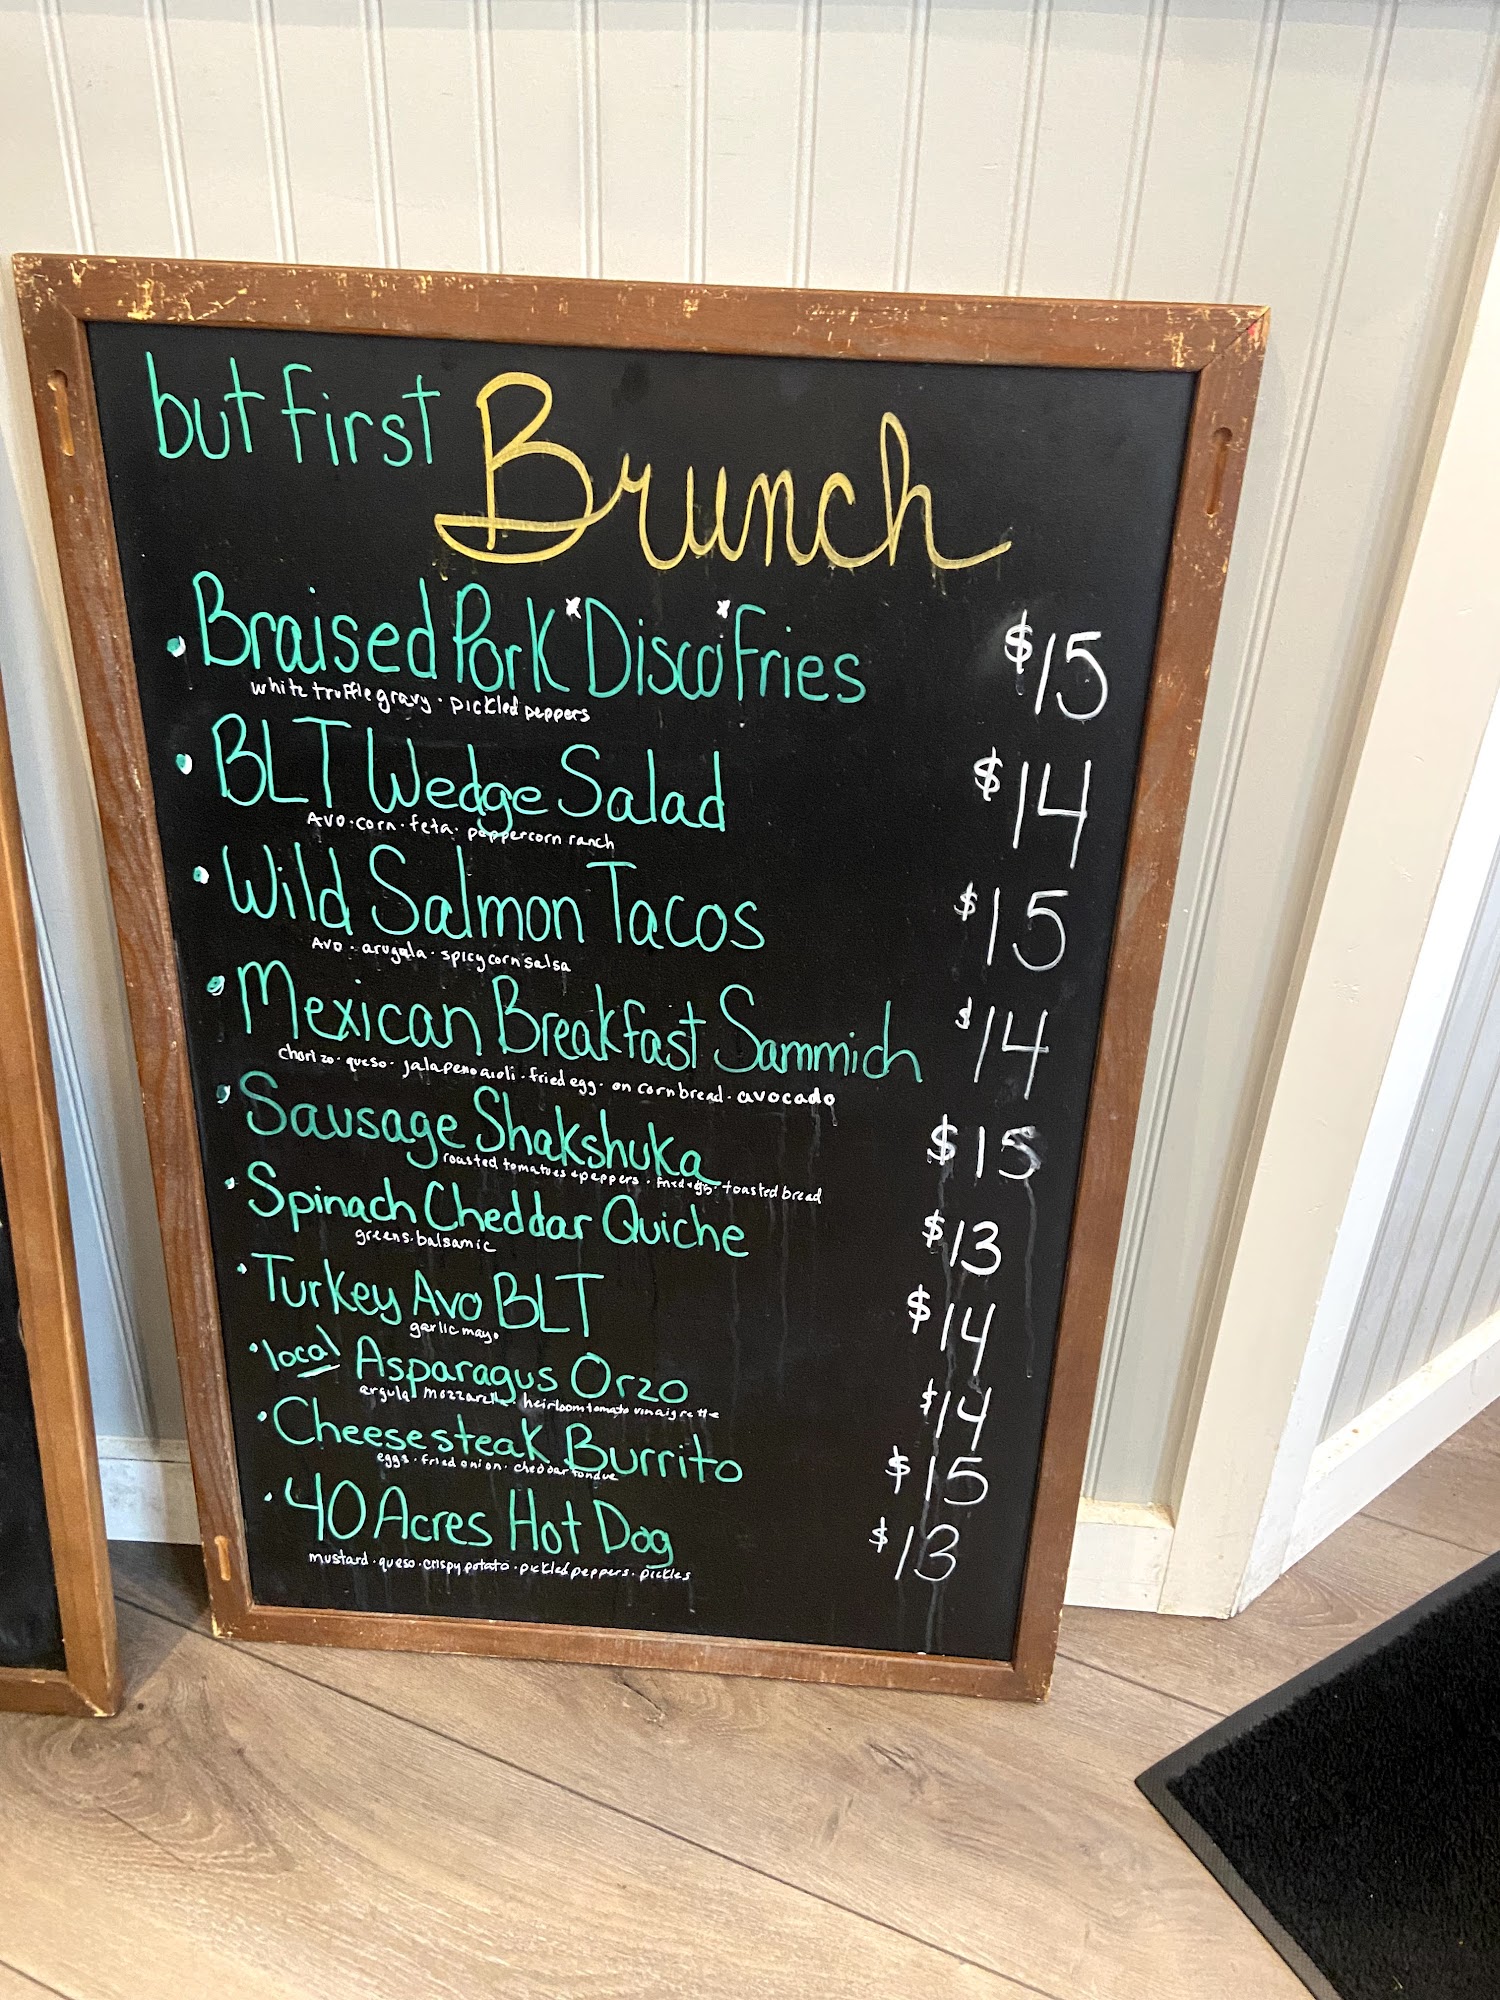 but first Brunch
• Braised Pork "Disco" Fries $15
white truffle gravy · pickled peppers
• BLT Wedge Salad $14
Avo · corn · feta · peppercorn ranch
• Wild Salmon Tacos $15
Avo · arugala · spicy corn salsa
• Mexican Breakfast Sammich $14
chorizo · queso · jalapeno aioli · fried egg · on corn bread · avocado
• Sausage Shakshuka $15
roasted tomatoes + peppers · fried egg · toasted bread
• Spinach Cheddar Quiche $13
greens · balsamic
• Turkey Avo BLT $14
garlic mayo
• local Asparagus Orzo $14
argula mozzarella · heirloom tomato vinaigrette
• Cheesesteak Burrito $15
eggs · fried onion · cheddar fondue
• 40 Acres Hot Dog $13
mustard · queso · crispy potato · pickled peppers · pickles